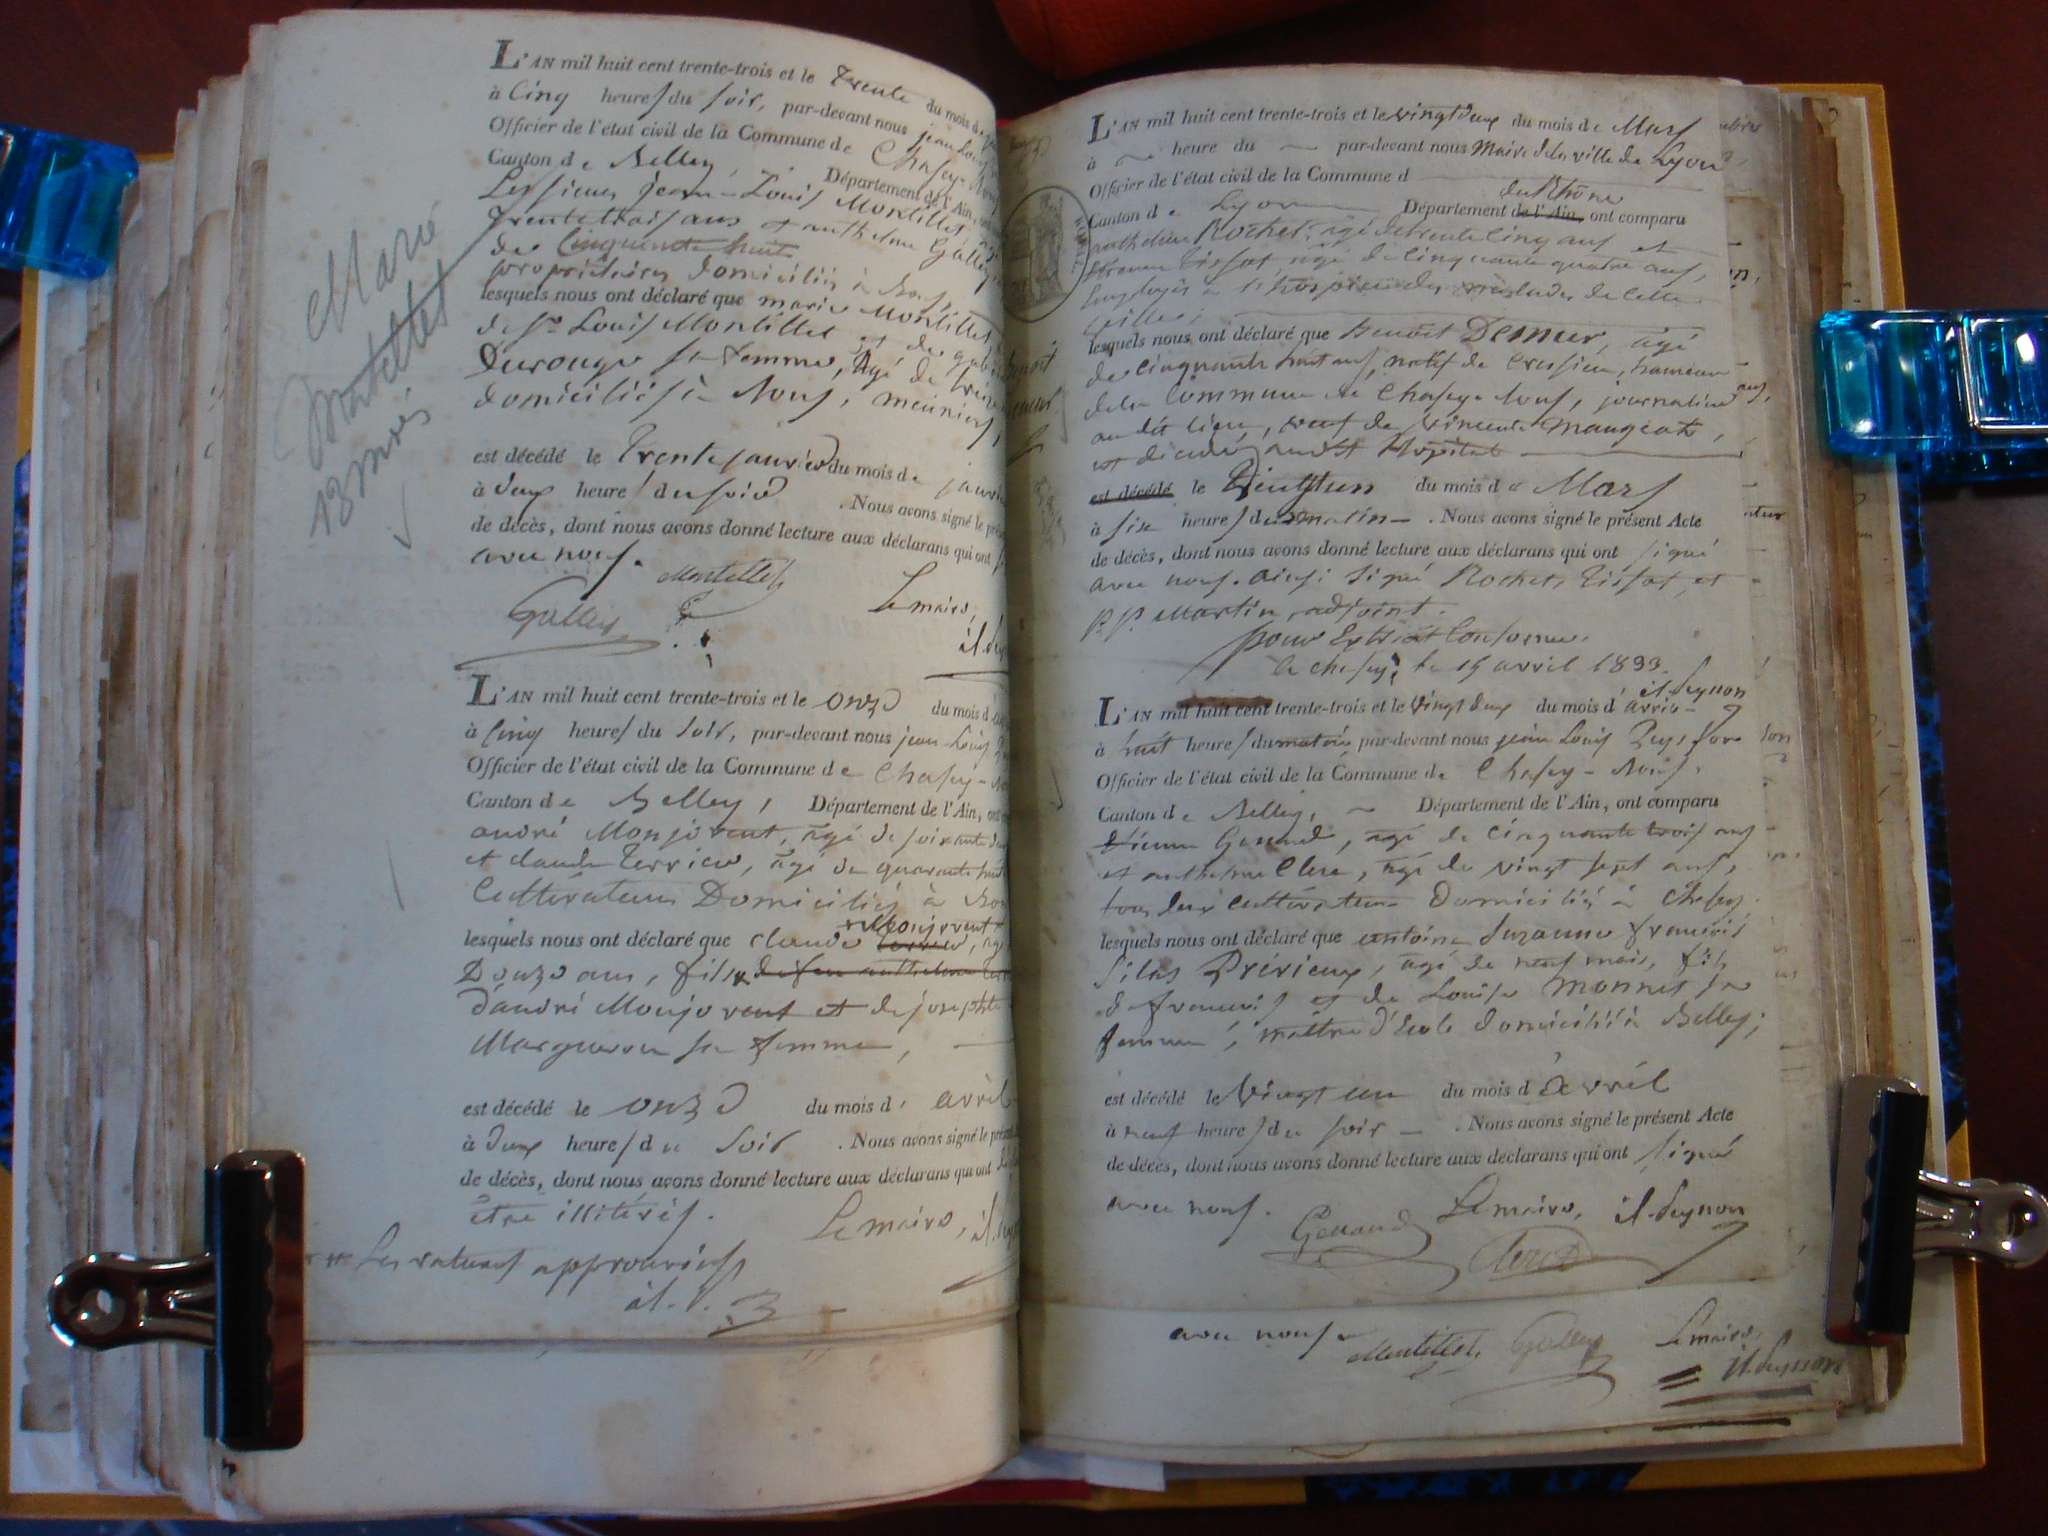 L'AN mil huit cent trente-trois et le trente du mois de
à Cinq heures du soir, par-devant nous jean Louis
Officier de l'état civil de la Commune de Chasey-
Canton de Belley, Département de l'Ain,
Les sieurs jean-Louis Montillet
trente trois ans et anthelme Galley
de Cinquante huit
propriétaires domiciliés à Bons,
lesquels nous ont déclaré que marie Montillet
de Louis Montillet et de
Durouge sa femme, âgé de
domiciliés à Bons, meuniers,
est décédé le trente janvier du mois de janvier
à deux heures du soir . Nous avons signé le
de décès, dont nous avons donné lecture aux déclarans qui ont
avec nous. Montillet
Galley Le maire,
Marie
Montillet
13 mois
L'AN mil huit cent trente-trois et le onze du mois d'
à Cinq heures du soir, par-devant nous jean Louis
Officier de l'état civil de la Commune de Chasey-
Canton de Belley, Département de l'Ain,
andré Monjovent, âgé de soixante
et claude Terrier, âgé de quarante huit
Cultivateurs Domiciliés à
Monjovent
lesquels nous ont déclaré que claude
Donze ans, fils de feu anthelme
d'andré Monjovent et de josephte
sa femme,
est décédé le onze du mois d' avril
à deux heures du soir . Nous avons signé le
de décès, dont nous avons donné lecture aux déclarans qui ont
être illitérés. Le maire,
Les ratures approuvées
L'AN mil huit cent trente-trois et le vingt deux du mois de Mars
à heure du par-devant nous Maire de la ville de Lyon
Officier de l'état civil de la Commune d
du Rhône
Canton de Lyon Département de l'Ain, ont comparu
anthelme Rochet, âgé de trente cinq ans et
Tissot, âgé de cinquante quatre ans,
employés à l'hospice des malades de cette
ville;
lesquels nous ont déclaré que Benoît Demeur, âgé
de cinquante huit ans, natif de Cressieu, hameau
de la Commune de Chasey-Bons, journalier
au dit lieu, veuf de Vincente Maugeat,
est décédé audit Hopital
est décédé le vingt un du mois de Mars
à six heures du matin . Nous avons signé le présent Acte
de décès, dont nous avons donné lecture aux déclarans qui ont signé
avec nous. ainsi signé Rochet, Tissot, et
P. P. Martin, adjoint.
pour Extrait Conforme.
à chasey, le 15 avril 1833.
L'AN mil huit cent trente-trois et le vingt deux du mois d' avril
à huit heures du matin, par-devant nous jean Louis Peysson
Officier de l'état civil de la Commune de Chasey-Bons,
Canton de Belley, Département de l'Ain, ont comparu
Etienne Genand, âgé de cinquante trois ans
et anthelme Clerc, âgé de vingt sept ans,
tous deux Cultivateurs Domiciliés à Chasey
lesquels nous ont déclaré que antoine Suzanne françois
Silas Prérieux, âgé de neuf mois, fils
de françois et de Louise Monnet sa
femme, maître d'école domicilié à Belley;
est décédé le vingt un du mois d'avril
à neuf heures du soir . Nous avons signé le présent Acte
de décès, dont nous avons donné lecture aux déclarans qui ont signé
avec nous. Le maire, jl. Peysson
Genand Clerc
avec nous. Montillet, Galley Le maire,
jl. Peysson